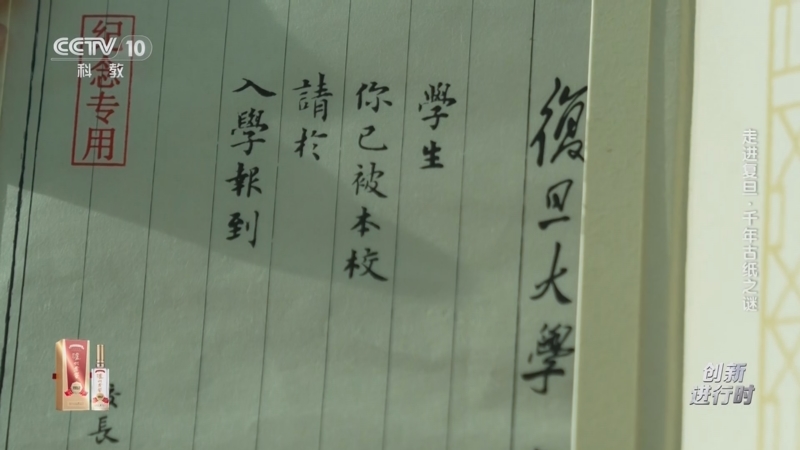 CCTV 10
科教
纪念专用
復旦大學
學生
你已被本校
請於
入學報到
校長
走进复旦·千年古纸之谜
创新
进行时